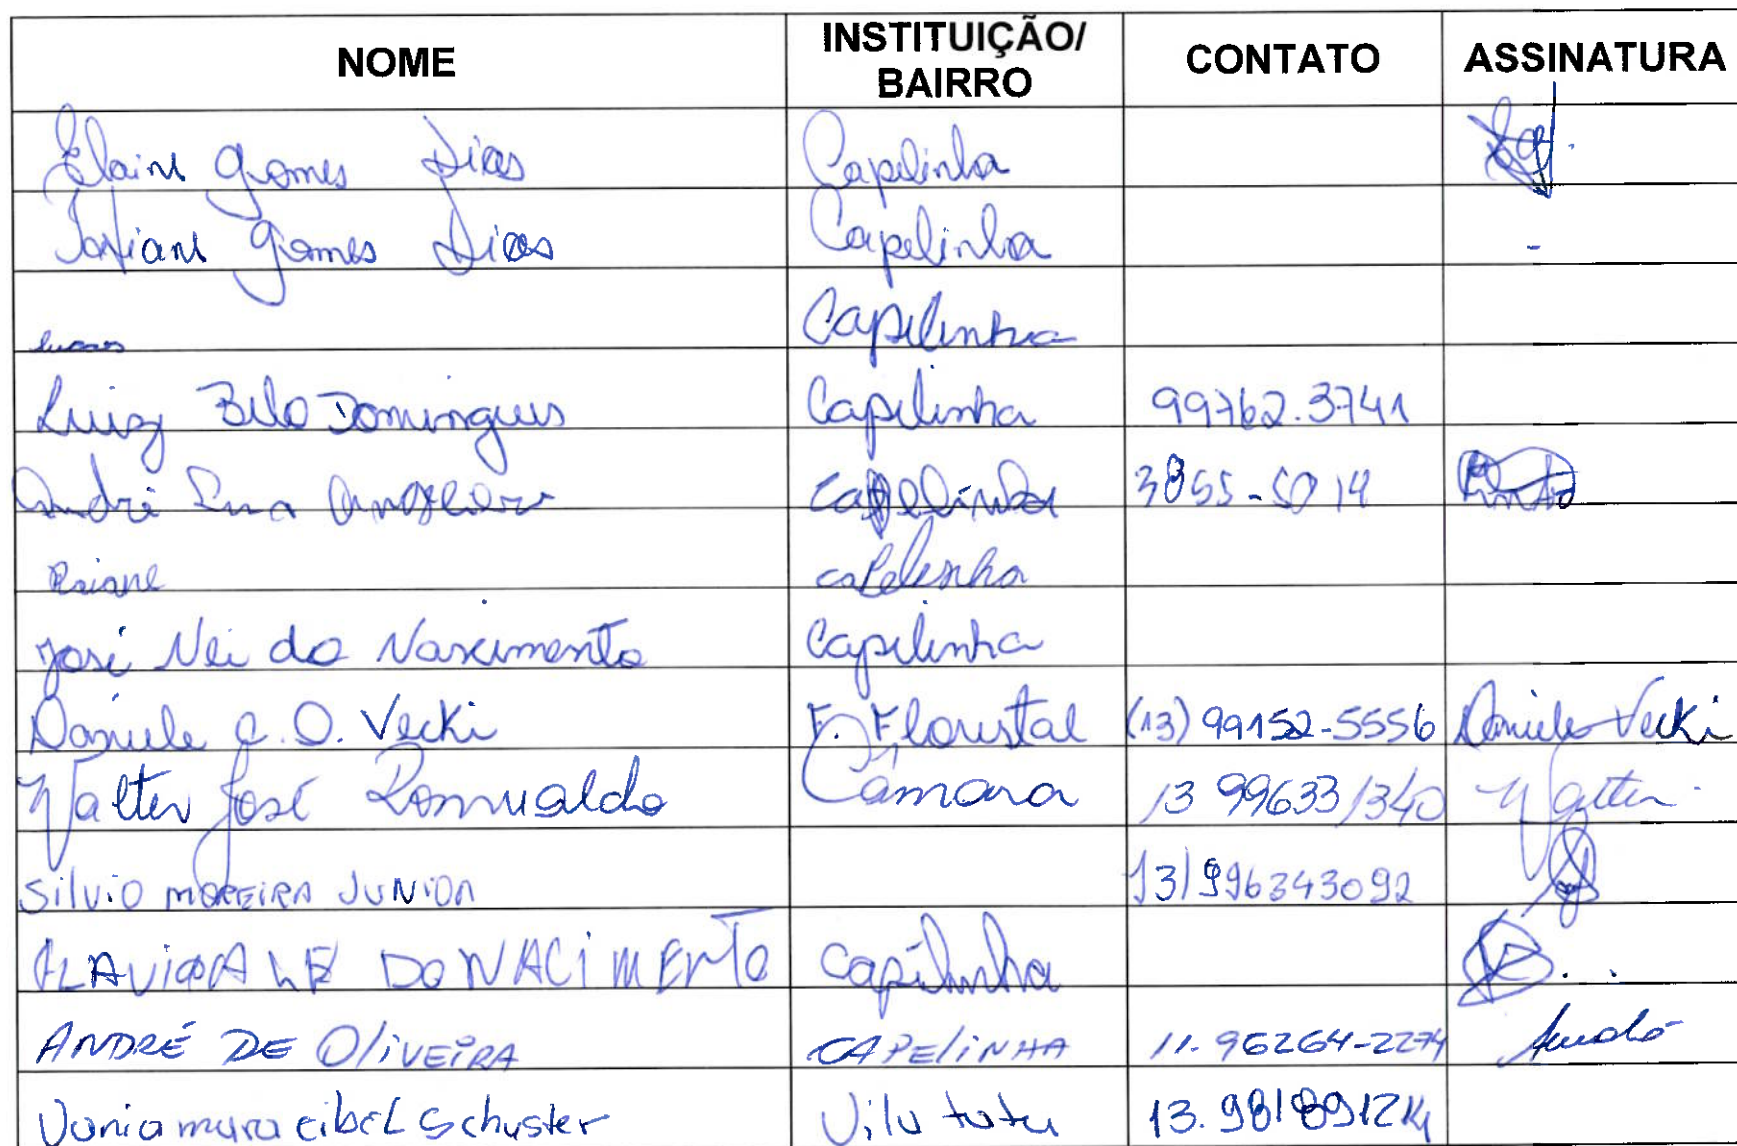 NOME INSTITUIÇÃO/ BAIRRO CONTATO ASSINATURA
Elaine Gomes Dias Capelinha
Tatiane Gomes Dias Capelinha -
lucas Capelinha
Luiz Belo Domingues Capelinha 99762.3741
André Capelinha 3855-5014
Raiane capelinha
José Nei do Nascimento Capelinha
Daniele C. O. Vecki F. Florestal (13) 99152-5556 Daniele Vecki
Walter José Romualdo Câmara 13 996331340 Walter
Silvio MOREIRA JUNIOR 13)996343092
DO NACiMENTO capelinha
ANDRÉ DE OliVEiRA CAPEliNHA 11.96264-2274
Vania mara eibel Schuster Vila tatu